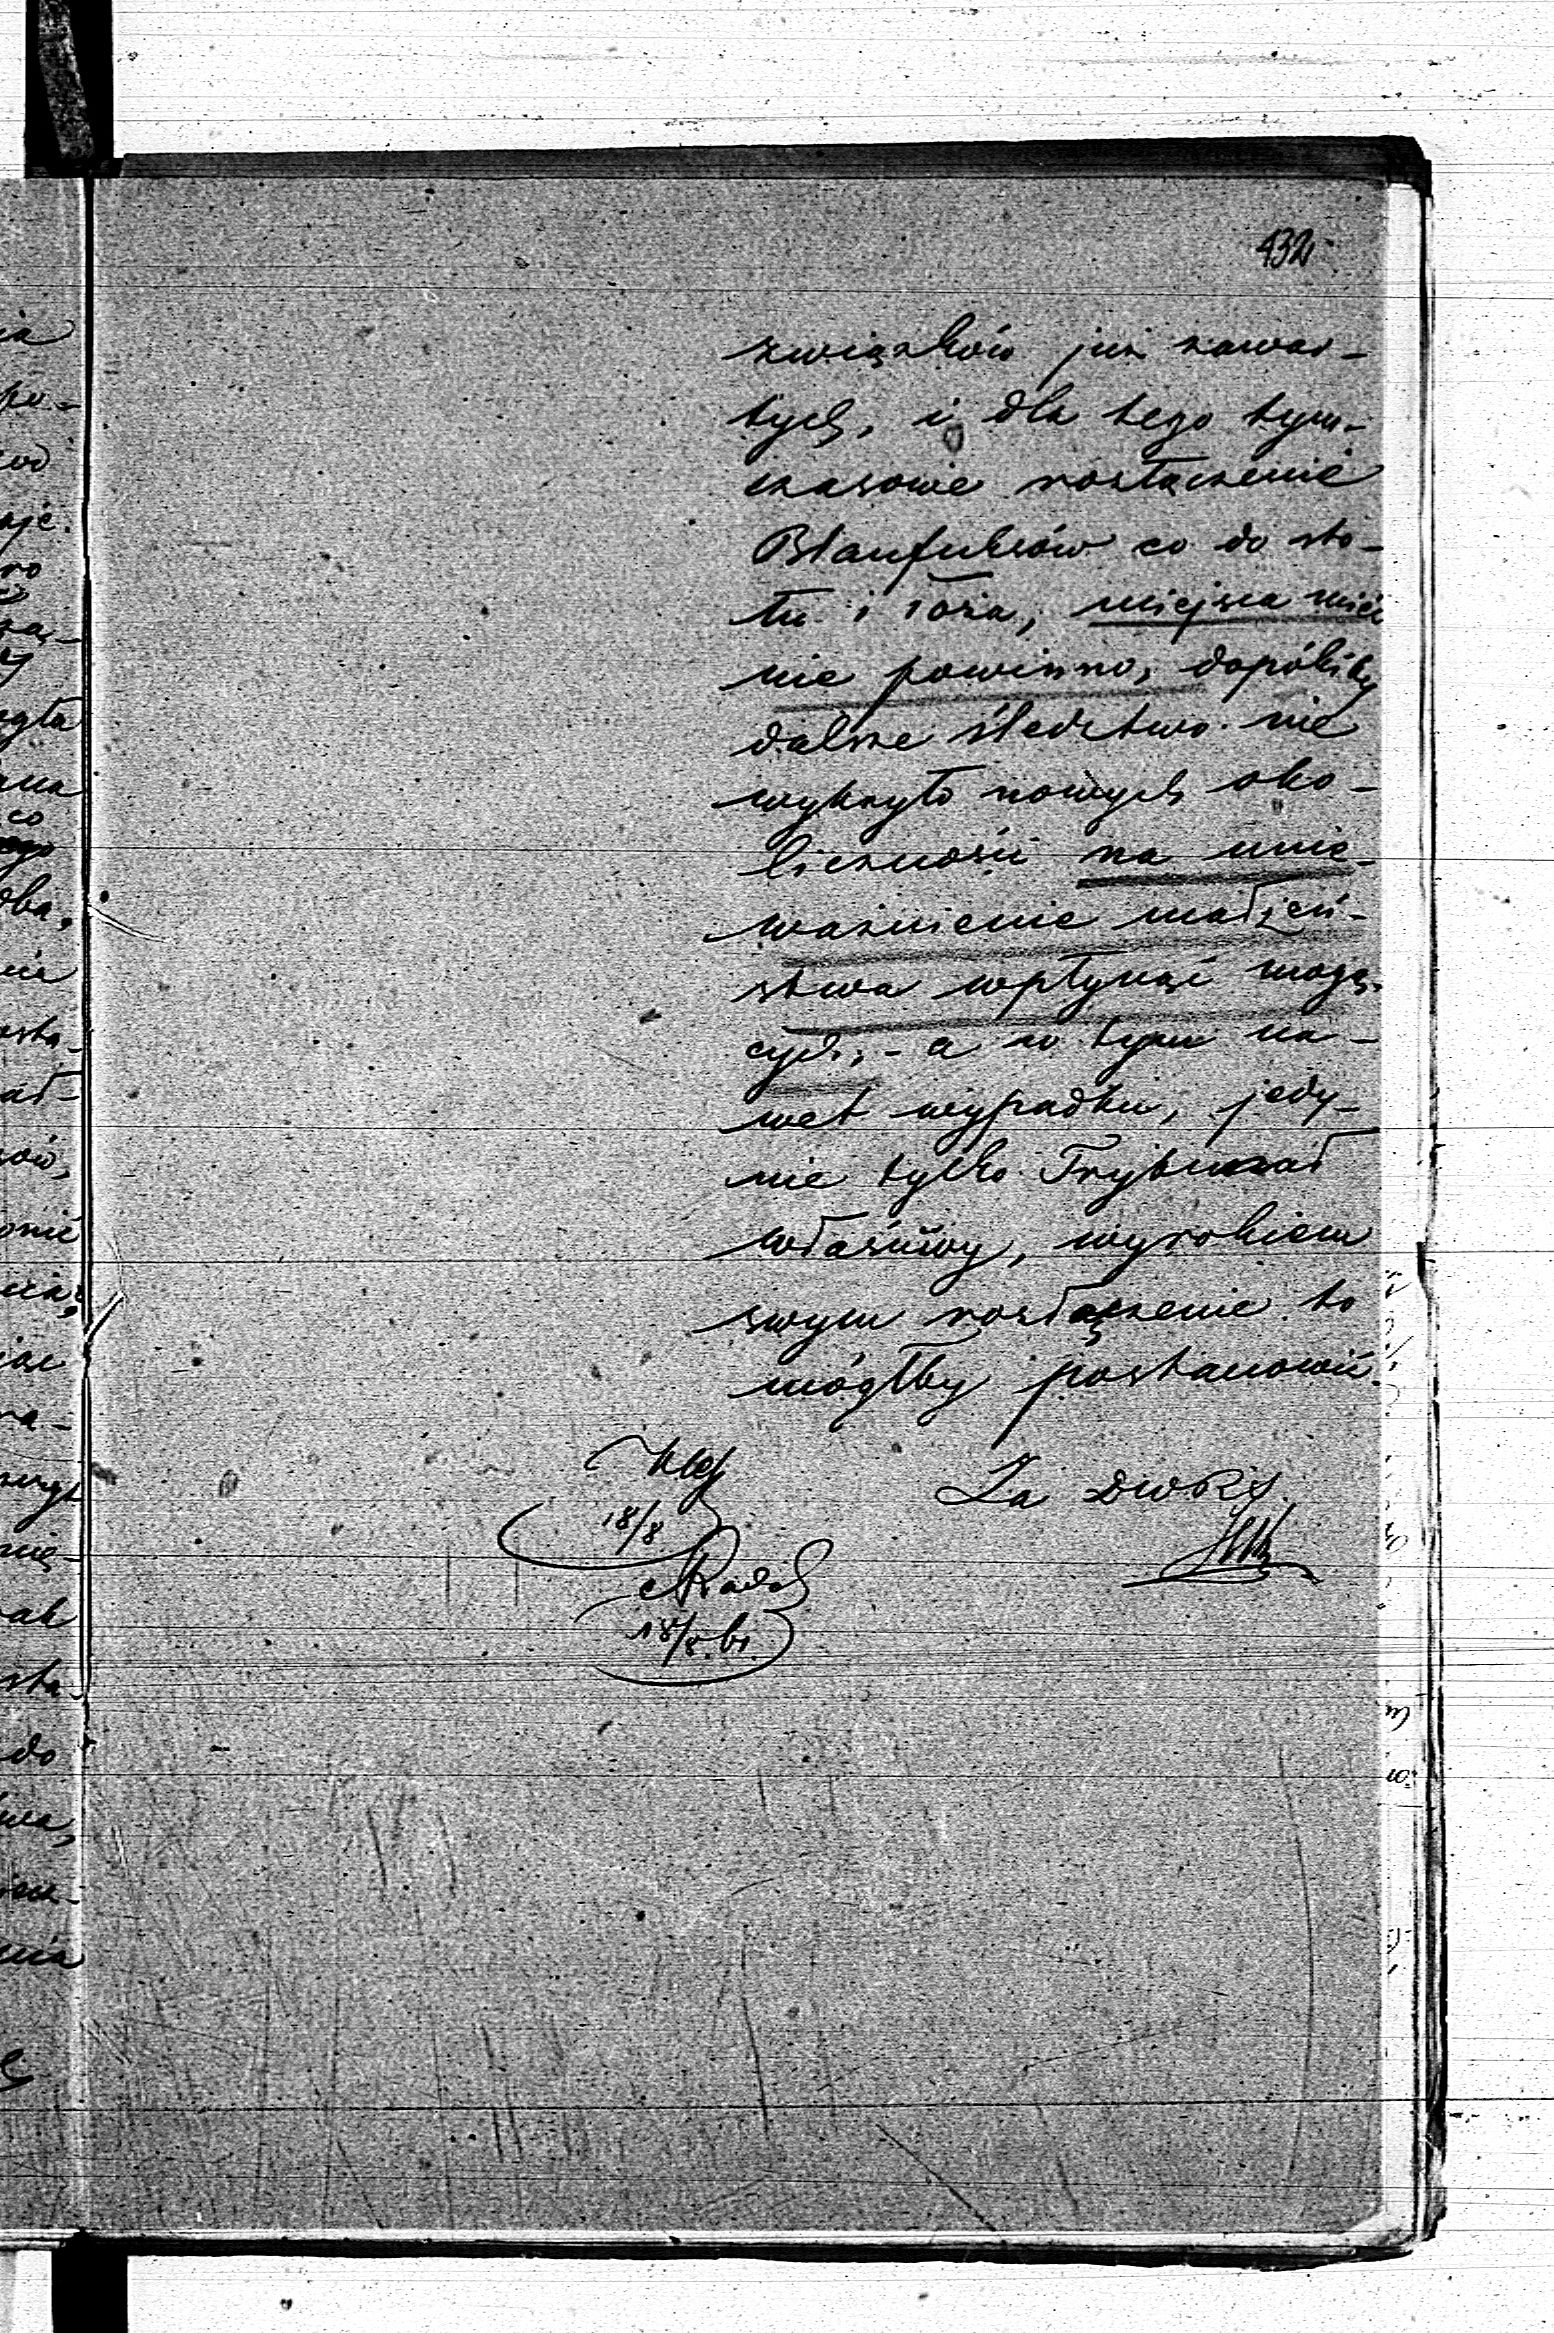 432
związków już zawar-
tych, i dla tego tym-
czasowie rozłączenie
Blaufuksów co do sto-
łu i łoża, miejsca mieć
nie powinno, dopókiby
dalsze śledztwo nie
wykryło nowych oko-
liczności na unie-
ważnienie małżeń-
stwa wpłynąć mogą-
cych, - a w tym na-
wet wypadku, jedy-
nie tylko Trybunał
właściwy, wyrokiem
swym rozłączenie to
mógłby postanowić.
Za DWRS
18/8
18/8. 61.